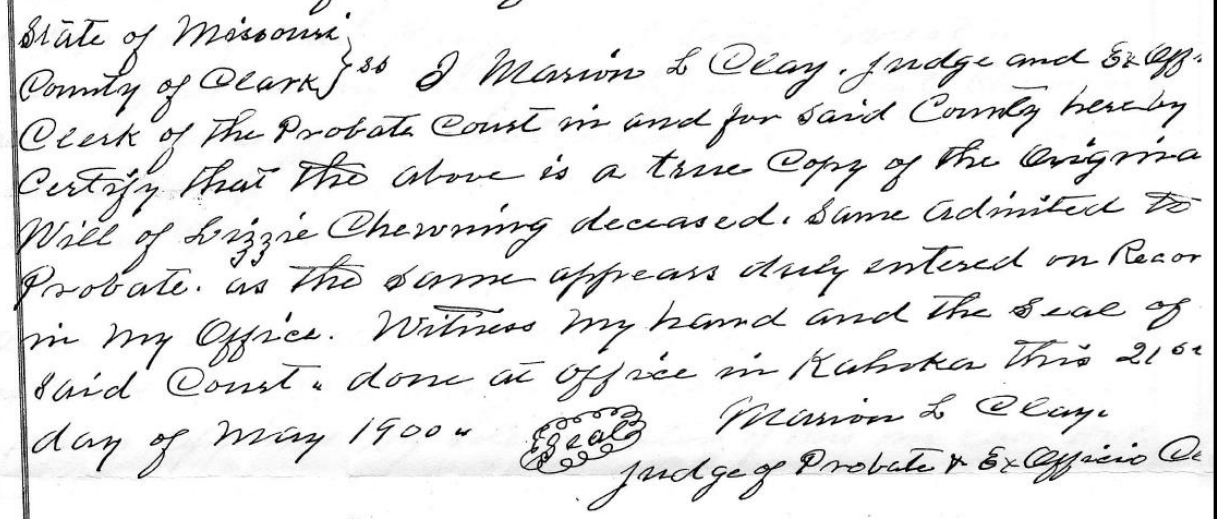 State of Missouri
County of Clark } ss I Marion L Clay. Judge and Ex Off
Clerk of the Probate Court in and for said County hereby
Certify that the above is a true Copy of the Origina
Will of Lizzie Chewning deceased. Same admitted to
Probate. as the same appears duly entered on Recor
in my Office. Witness my hand and the seal of
said Court. done at office in Kahoka this 21st
day of May 1900. Seal Marion L Clay.
Judge of Probate & Ex Officio Cl